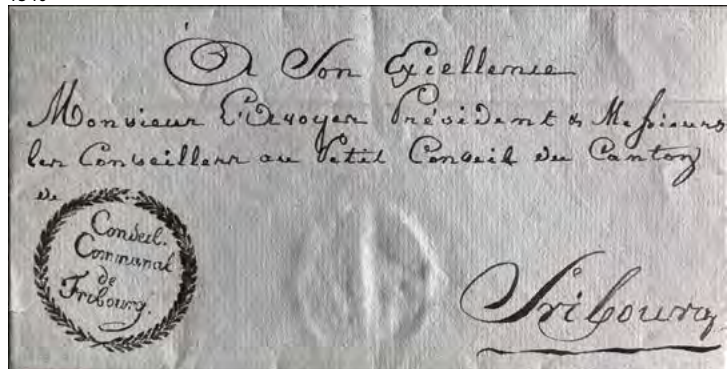 À Son Excellence
Monsieur L'Avoyer Président & Messieurs
les Conseillers au Petit Conseil du Canton
de
Conseil
Communal
de
Fribourg.
Fribourg